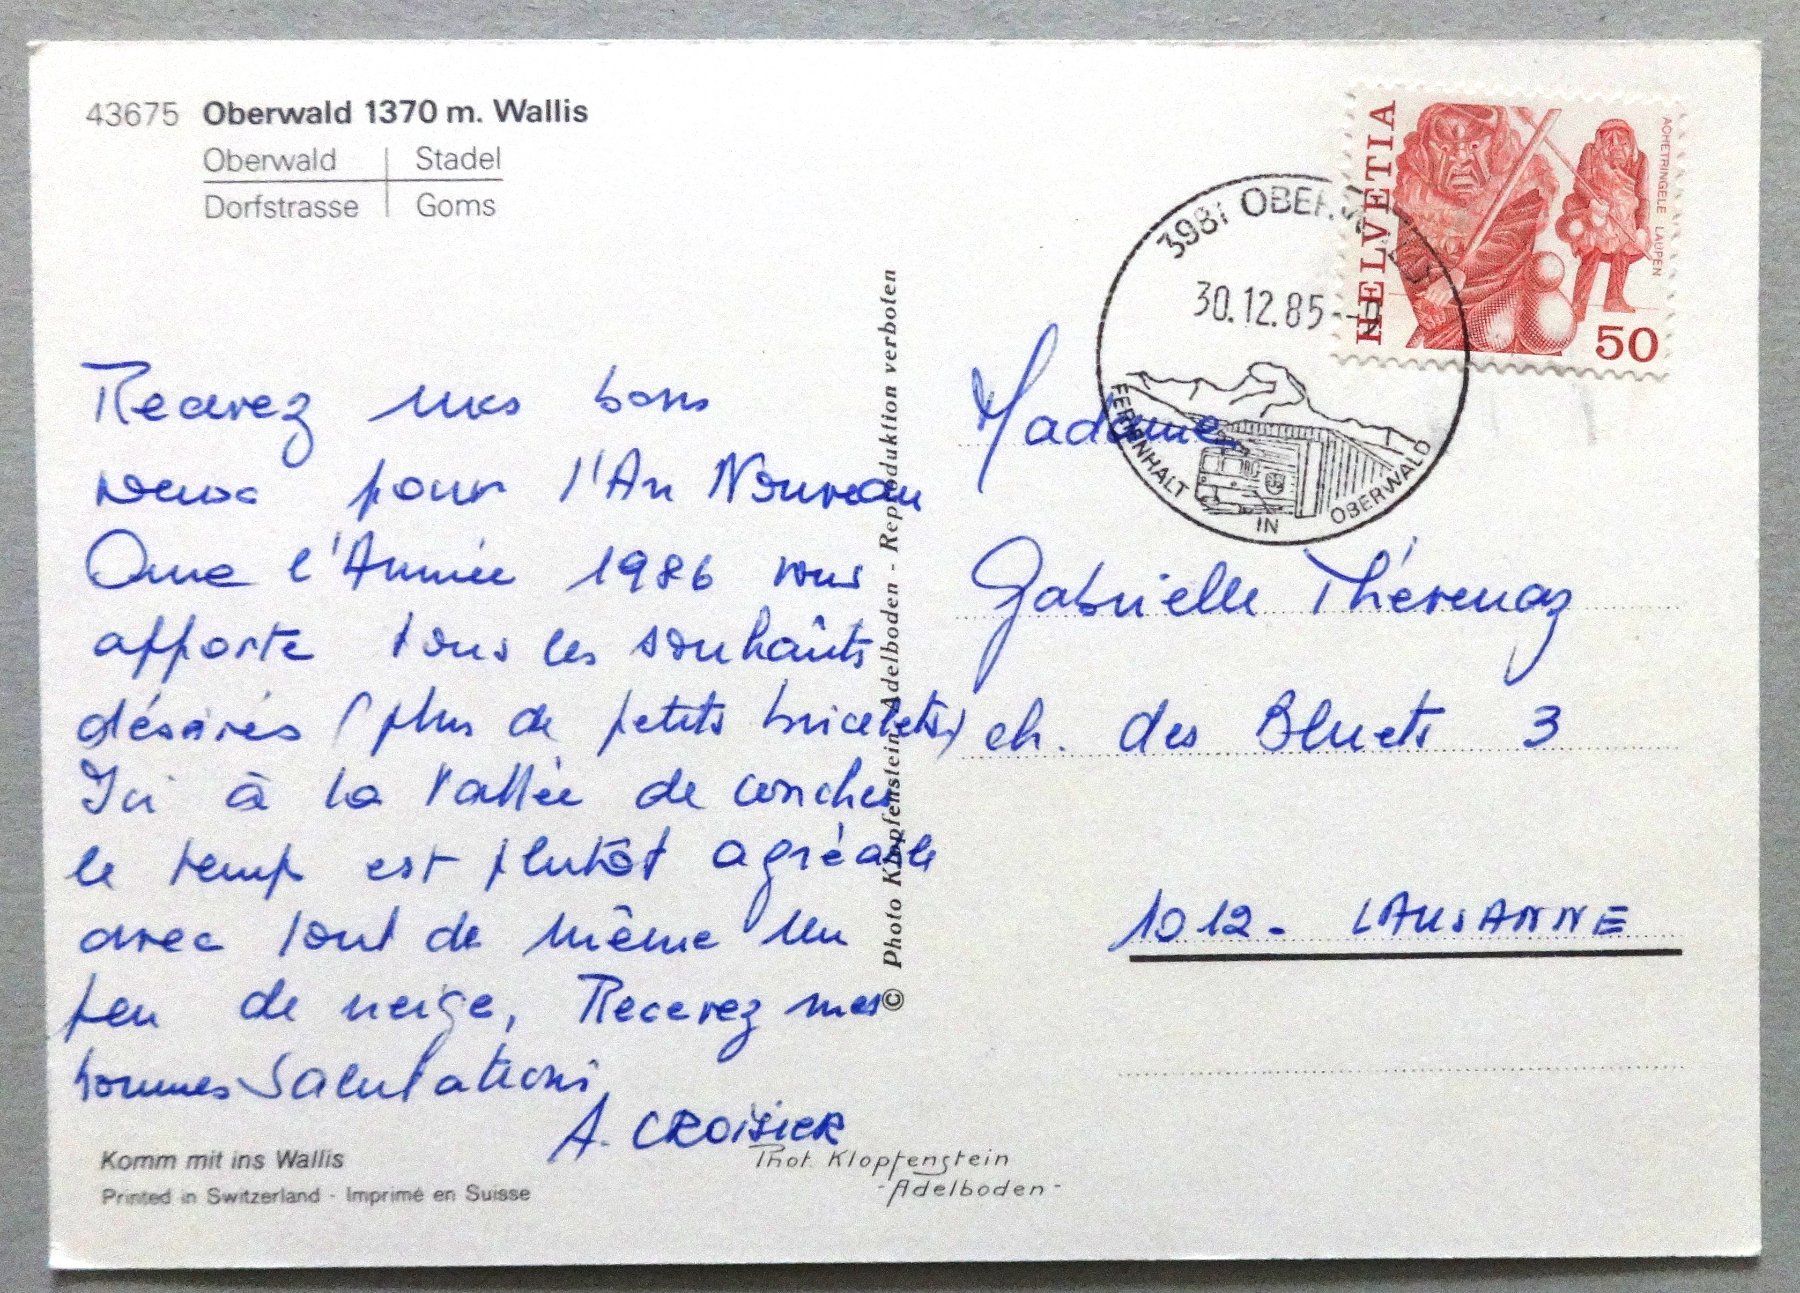 43675 Oberwald 1370 m. Wallis
Oberwald | Stadel
Dorfstrasse | Goms
HELVETIA
ACHETRINGELE LAUPEN
50
3981 OBERWALD
30.12.85
FERIENHALT IN OBERWALD
Recevez mes bons
voeux pour l'An Nouveau
Que l'Année 1986 vous
apporte tous les souhaits
désirés (plus de petits bricelets)
Ici à la Vallée de conches
le temp est plutôt agréable
avec tout de même un
peu de neige, Recevez mes
bonnes Salutations
A. CROISIER
Madame
Gabrielle Thérenaz
ch. des Bluets 3
1012 - LAUSANNE
© Photo Klopfenstein, Adelboden - Reproduktion verboten
Komm mit ins Wallis
Printed in Switzerland - Imprimé en Suisse
Phot. Klopfenstein
- Adelboden -